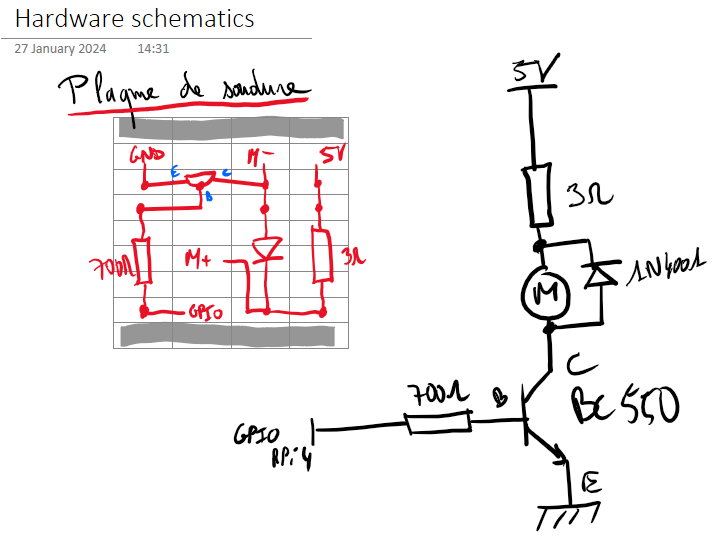 Hardware schematics
27 January 2024 14:31
Plaque de soudure
GND M- 5V
E C
B
700Ω M+ 3Ω
GPIO
5V
3Ω
M 1N4001
C
700Ω B BC550
GPIO
RPi4
E